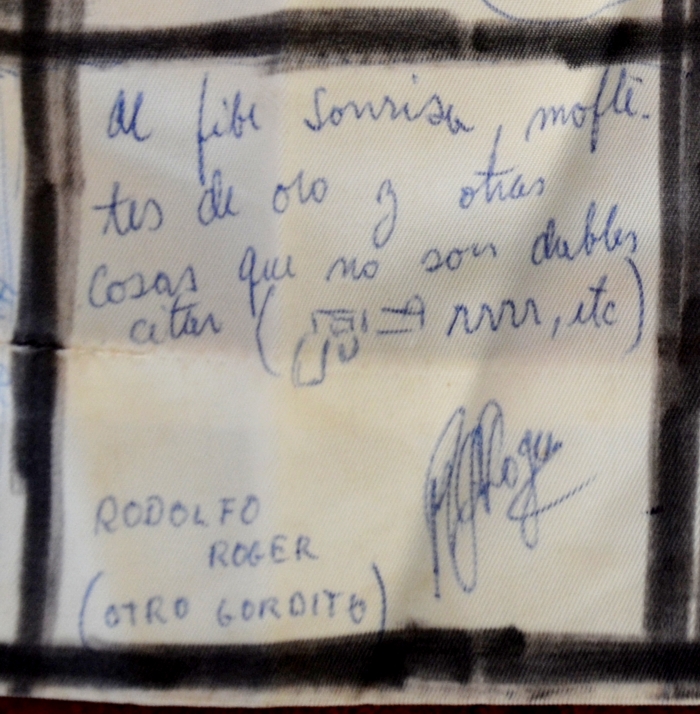 Al pibe Sonrisa, mofle-
tes de oro y otras
cosas que no son dables
citar ( rrrr, etc)
RODOLFO
ROGER
(OTRO GORDITO)